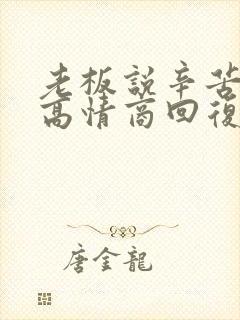 老板說辛苦
高情商回復
唐金龍